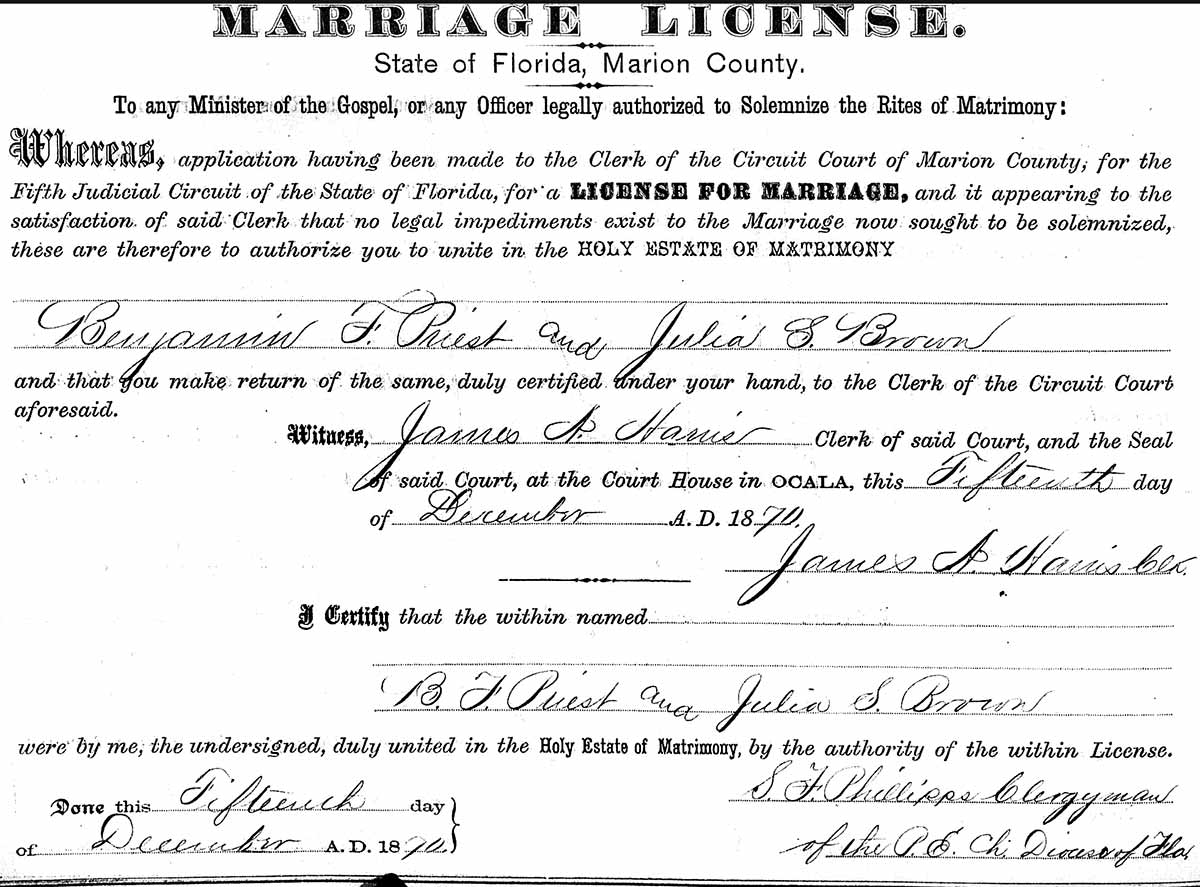 MARRIAGE LICENSE.
State of Florida, Marion County.
To any Minister of the Gospel, or any Officer legally authorized to Solemnize the Rites of Matrimony:
Whereas, application having been made to the Clerk of the Circuit Court of Marion County, for the
Fifth Judicial Circuit of the State of Florida, for a LICENSE FOR MARRIAGE, and it appearing to the
satisfaction of said Clerk that no legal impediments exist to the Marriage now sought to be solemnized,
these are therefore to authorize you to unite in the HOLY ESTATE OF MATRIMONY
Benjamin F. Priest and Julia S. Brown
and that you make return of the same, duly certified under your hand, to the Clerk of the Circuit Court
aforesaid.
Witness, James A. Harris Clerk of said Court, and the Seal
of said Court, at the Court House in OCALA, this Fifteenth day
of December A.D. 1870.
James A. Harris Clk.
I Certify that the within named
B. F Priest and Julia S. Brown
were by me, the undersigned, duly united in the Holy Estate of Matrimony, by the authority of the within License.
Done this Fifteenth day
of December A.D. 1870.
S. F. Phillipps Clergyman
of the P. E. Ch. Diocese of Fla.